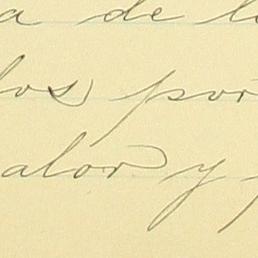 a de l
los por
alor y